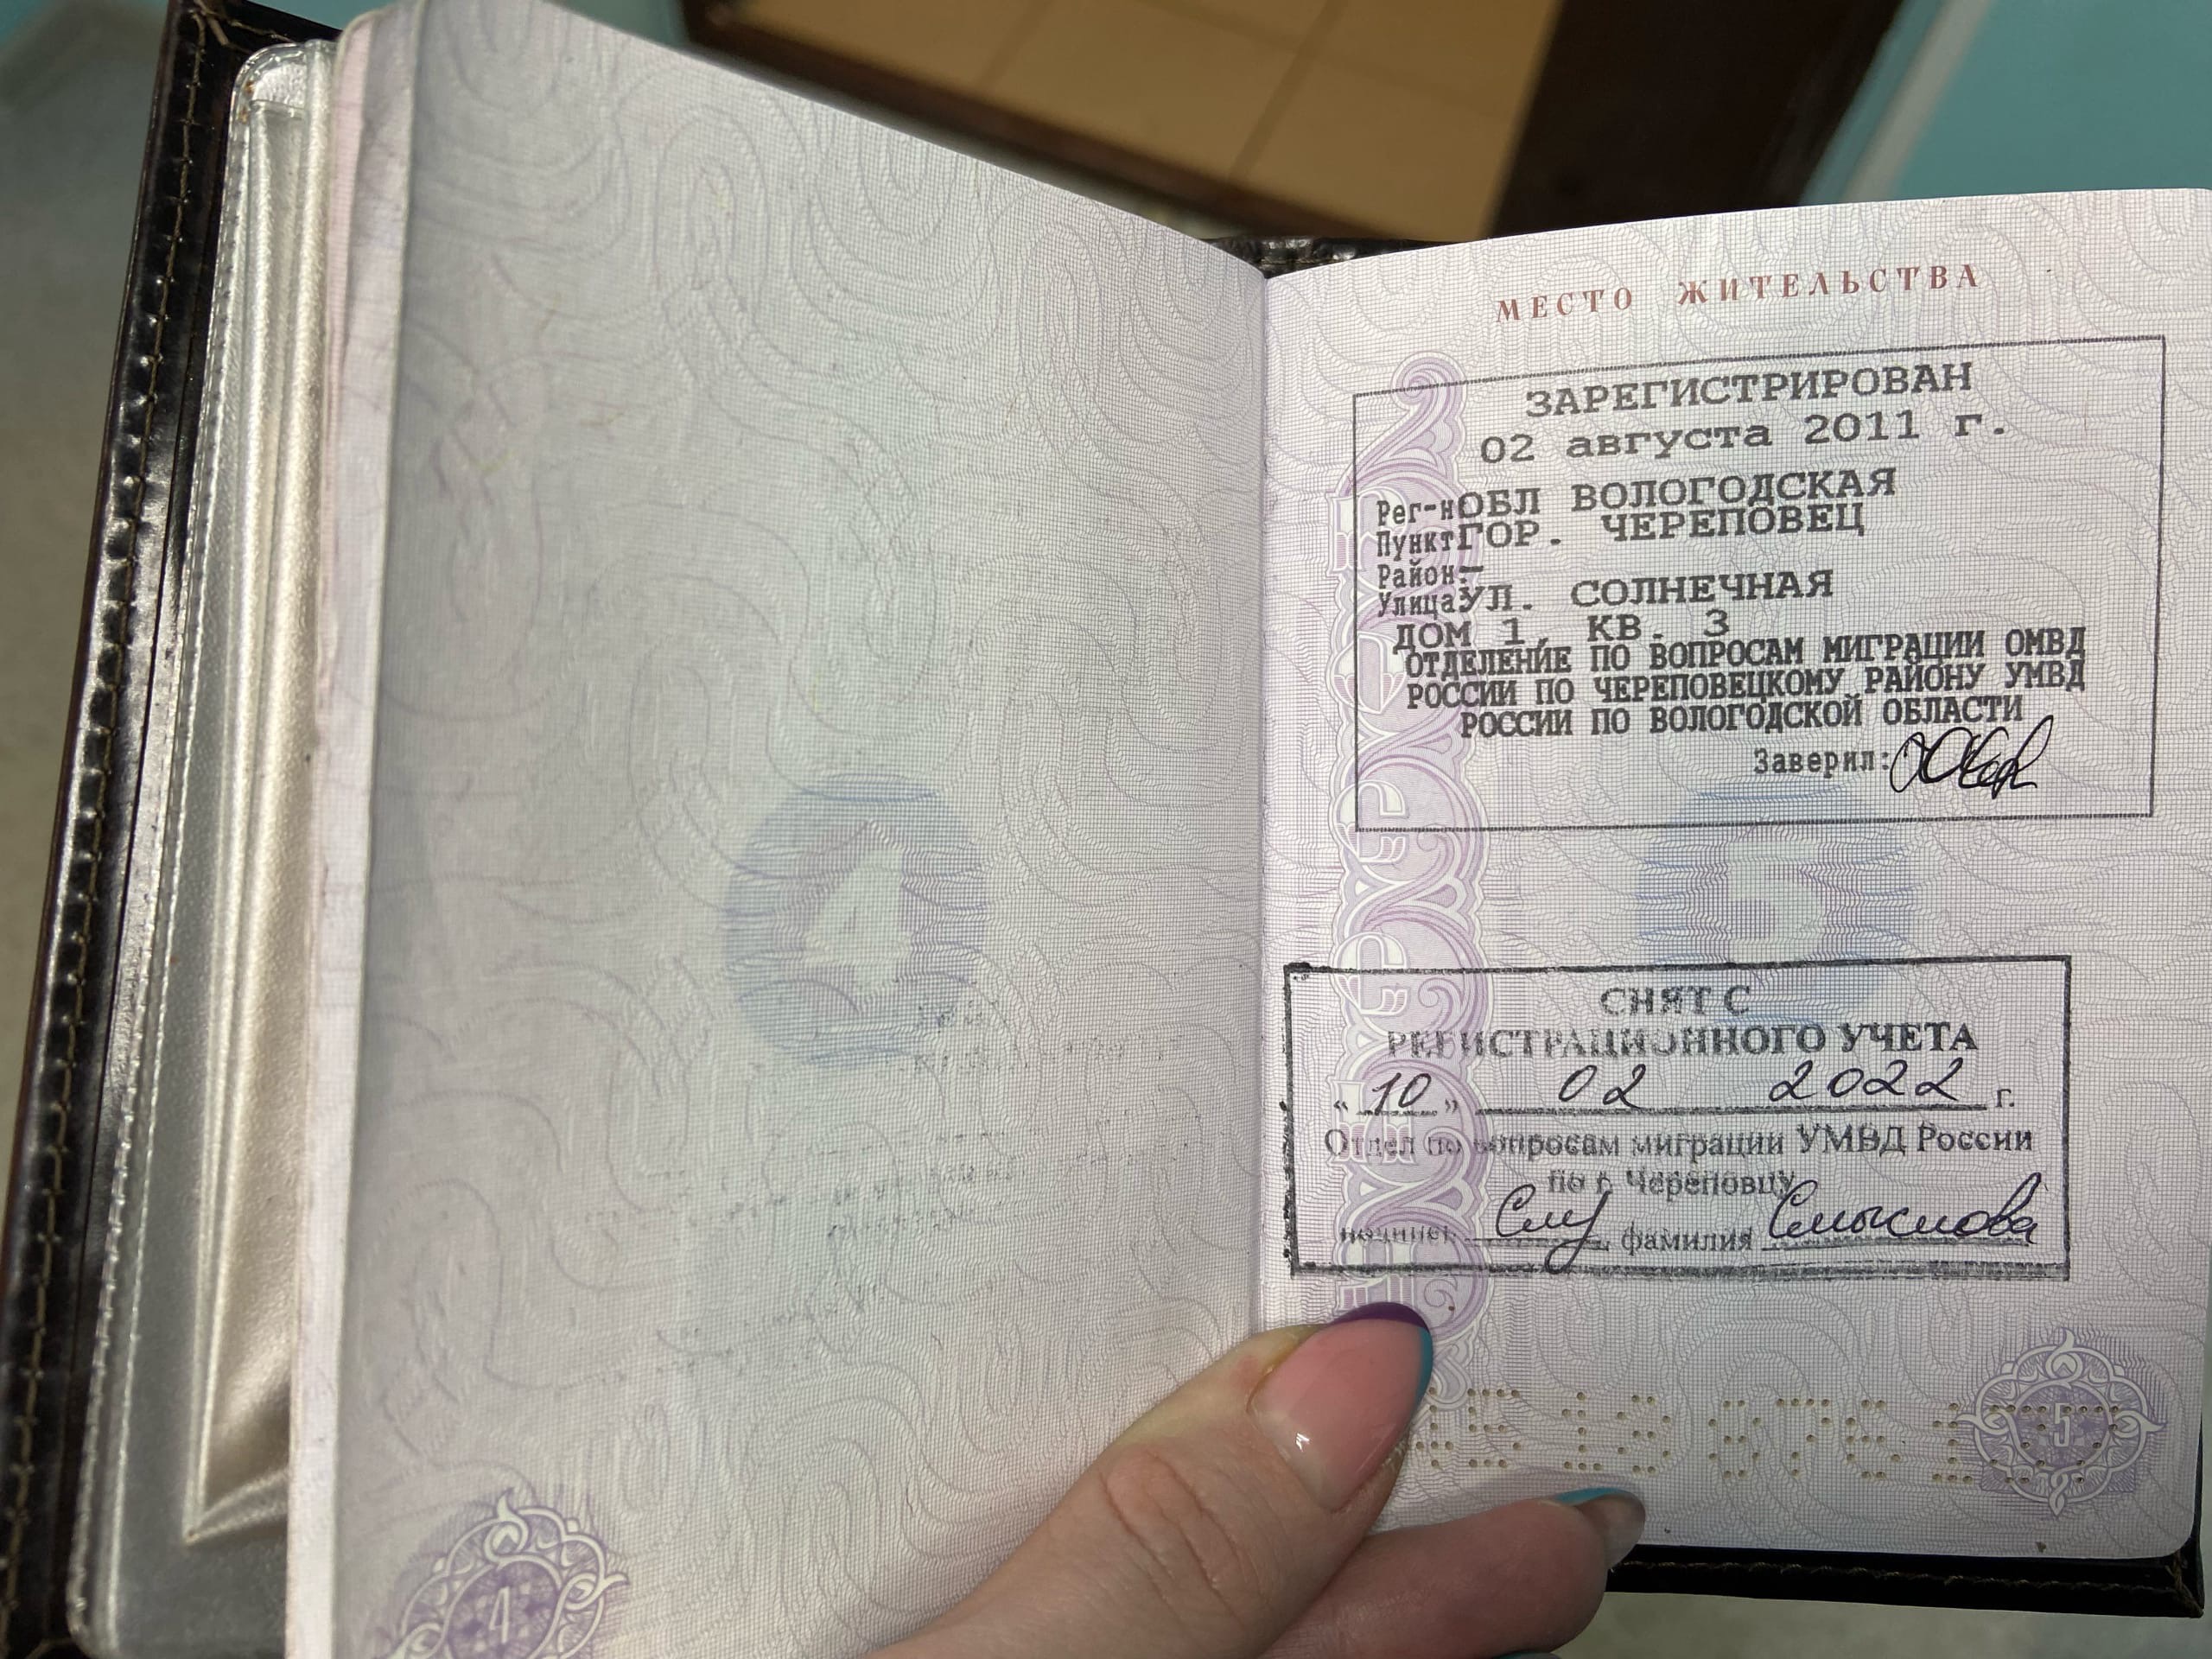 МЕСТО ЖИТЕЛЬСТВА
ЗАРЕГИСТРИРОВАН
02 августа 2011 г.
Рег-нОБЛ ВОЛОГОДСКАЯ
ПунктГОР. ЧЕРЕПОВЕЦ
Район-
УлицаУЛ. СОЛНЕЧНАЯ
ДОМ 1, КВ. 3
ОТДЕЛЕНИЕ ПО ВОПРОСАМ МИГРАЦИИ ОМВД
РОССИИ ПО ЧЕРЕПОВЕЦКОМУ РАЙОНУ УМВД
РОССИИ ПО ВОЛОГОДСКОЙ ОБЛАСТИ
Заверил:
5
СНЯТ С
РЕГИСТРАЦИОННОГО УЧЕТА
« 10 » 02 2022 г.
Отдел по вопросам миграции УМВД России
по г. Череповцу
фамилия
5
4
4